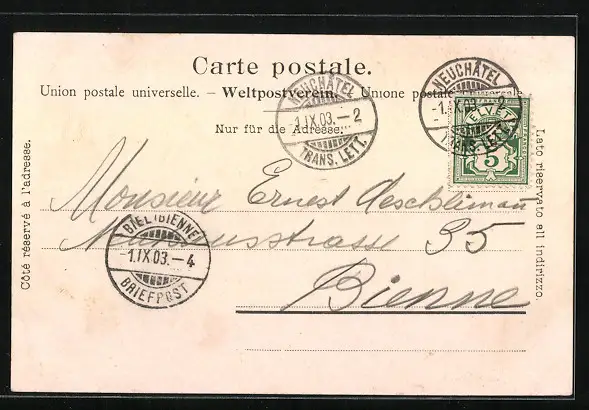 Carte postale.
Union postale universelle. – Weltpostverein. – Unione postale universale.
Nur für die Adresse.
NEUCHÂTEL
1.IX.03.–2
TRANS. LETT.
NEUCHÂTEL
-1.IX.03.
TRANS. LETT.
HELVETIA
5
Monsieur Ernest Aeschlimann
35
Bienne
BIEL (BIENNE)
-1.IX.03.–4
BRIEFPOST
Côté réservé à l'adresse.
Lato riservato all indirizzo.